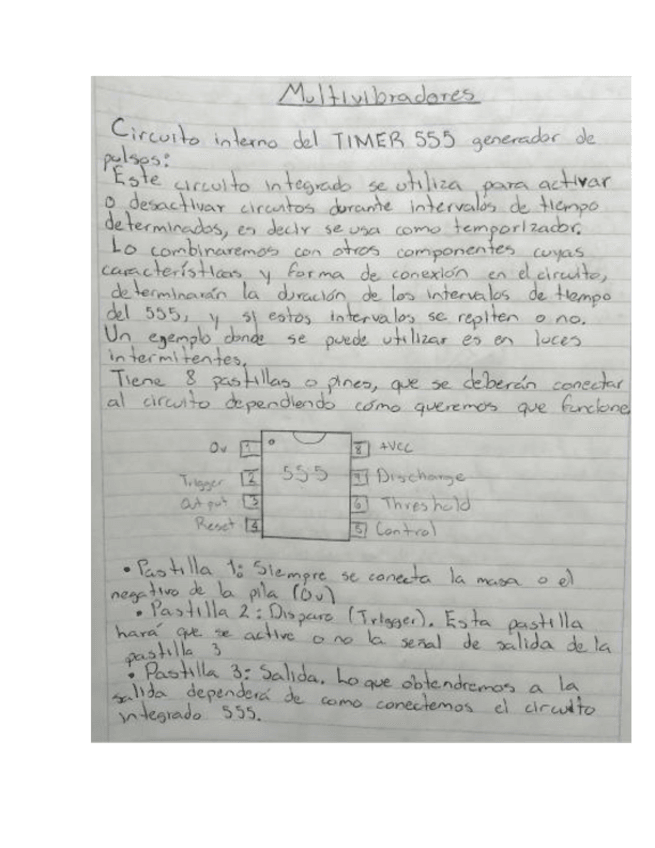 Multivibradores
Circuito interno del TIMER 555 generador de
pulsos:
Este circuito integrado se utiliza para activar
o desactivar circuitos durante intervalos de tiempo
determinados, es decir se usa como temporizador.
Lo combinaremos con otros componentes cuyas
características y forma de conexión en el circuito,
determinarán la duración de los intervalos de tiempo
del 555, y si estos intervalos se repiten o no.
Un ejemplo donde se puede utilizar es en luces
intermitentes.
Tiene 8 pastillas o pines, que se deberán conectar
al circuito dependiendo cómo queremos que funcione
0v 1 8 +VCC
555
Trigger 2 7 Discharge
Output 3 6 Threshold
Reset 4 5 Control
• Pastilla 1: Siempre se conecta la masa o el
negativo de la pila (0v)
• Pastilla 2: Disparo (Trigger). Esta pastilla
hará que se active o no la señal de salida de la
pastilla 3
• Pastilla 3: Salida. Lo que obtendremos a la
salida dependerá de como conectemos el circuito
integrado 555.